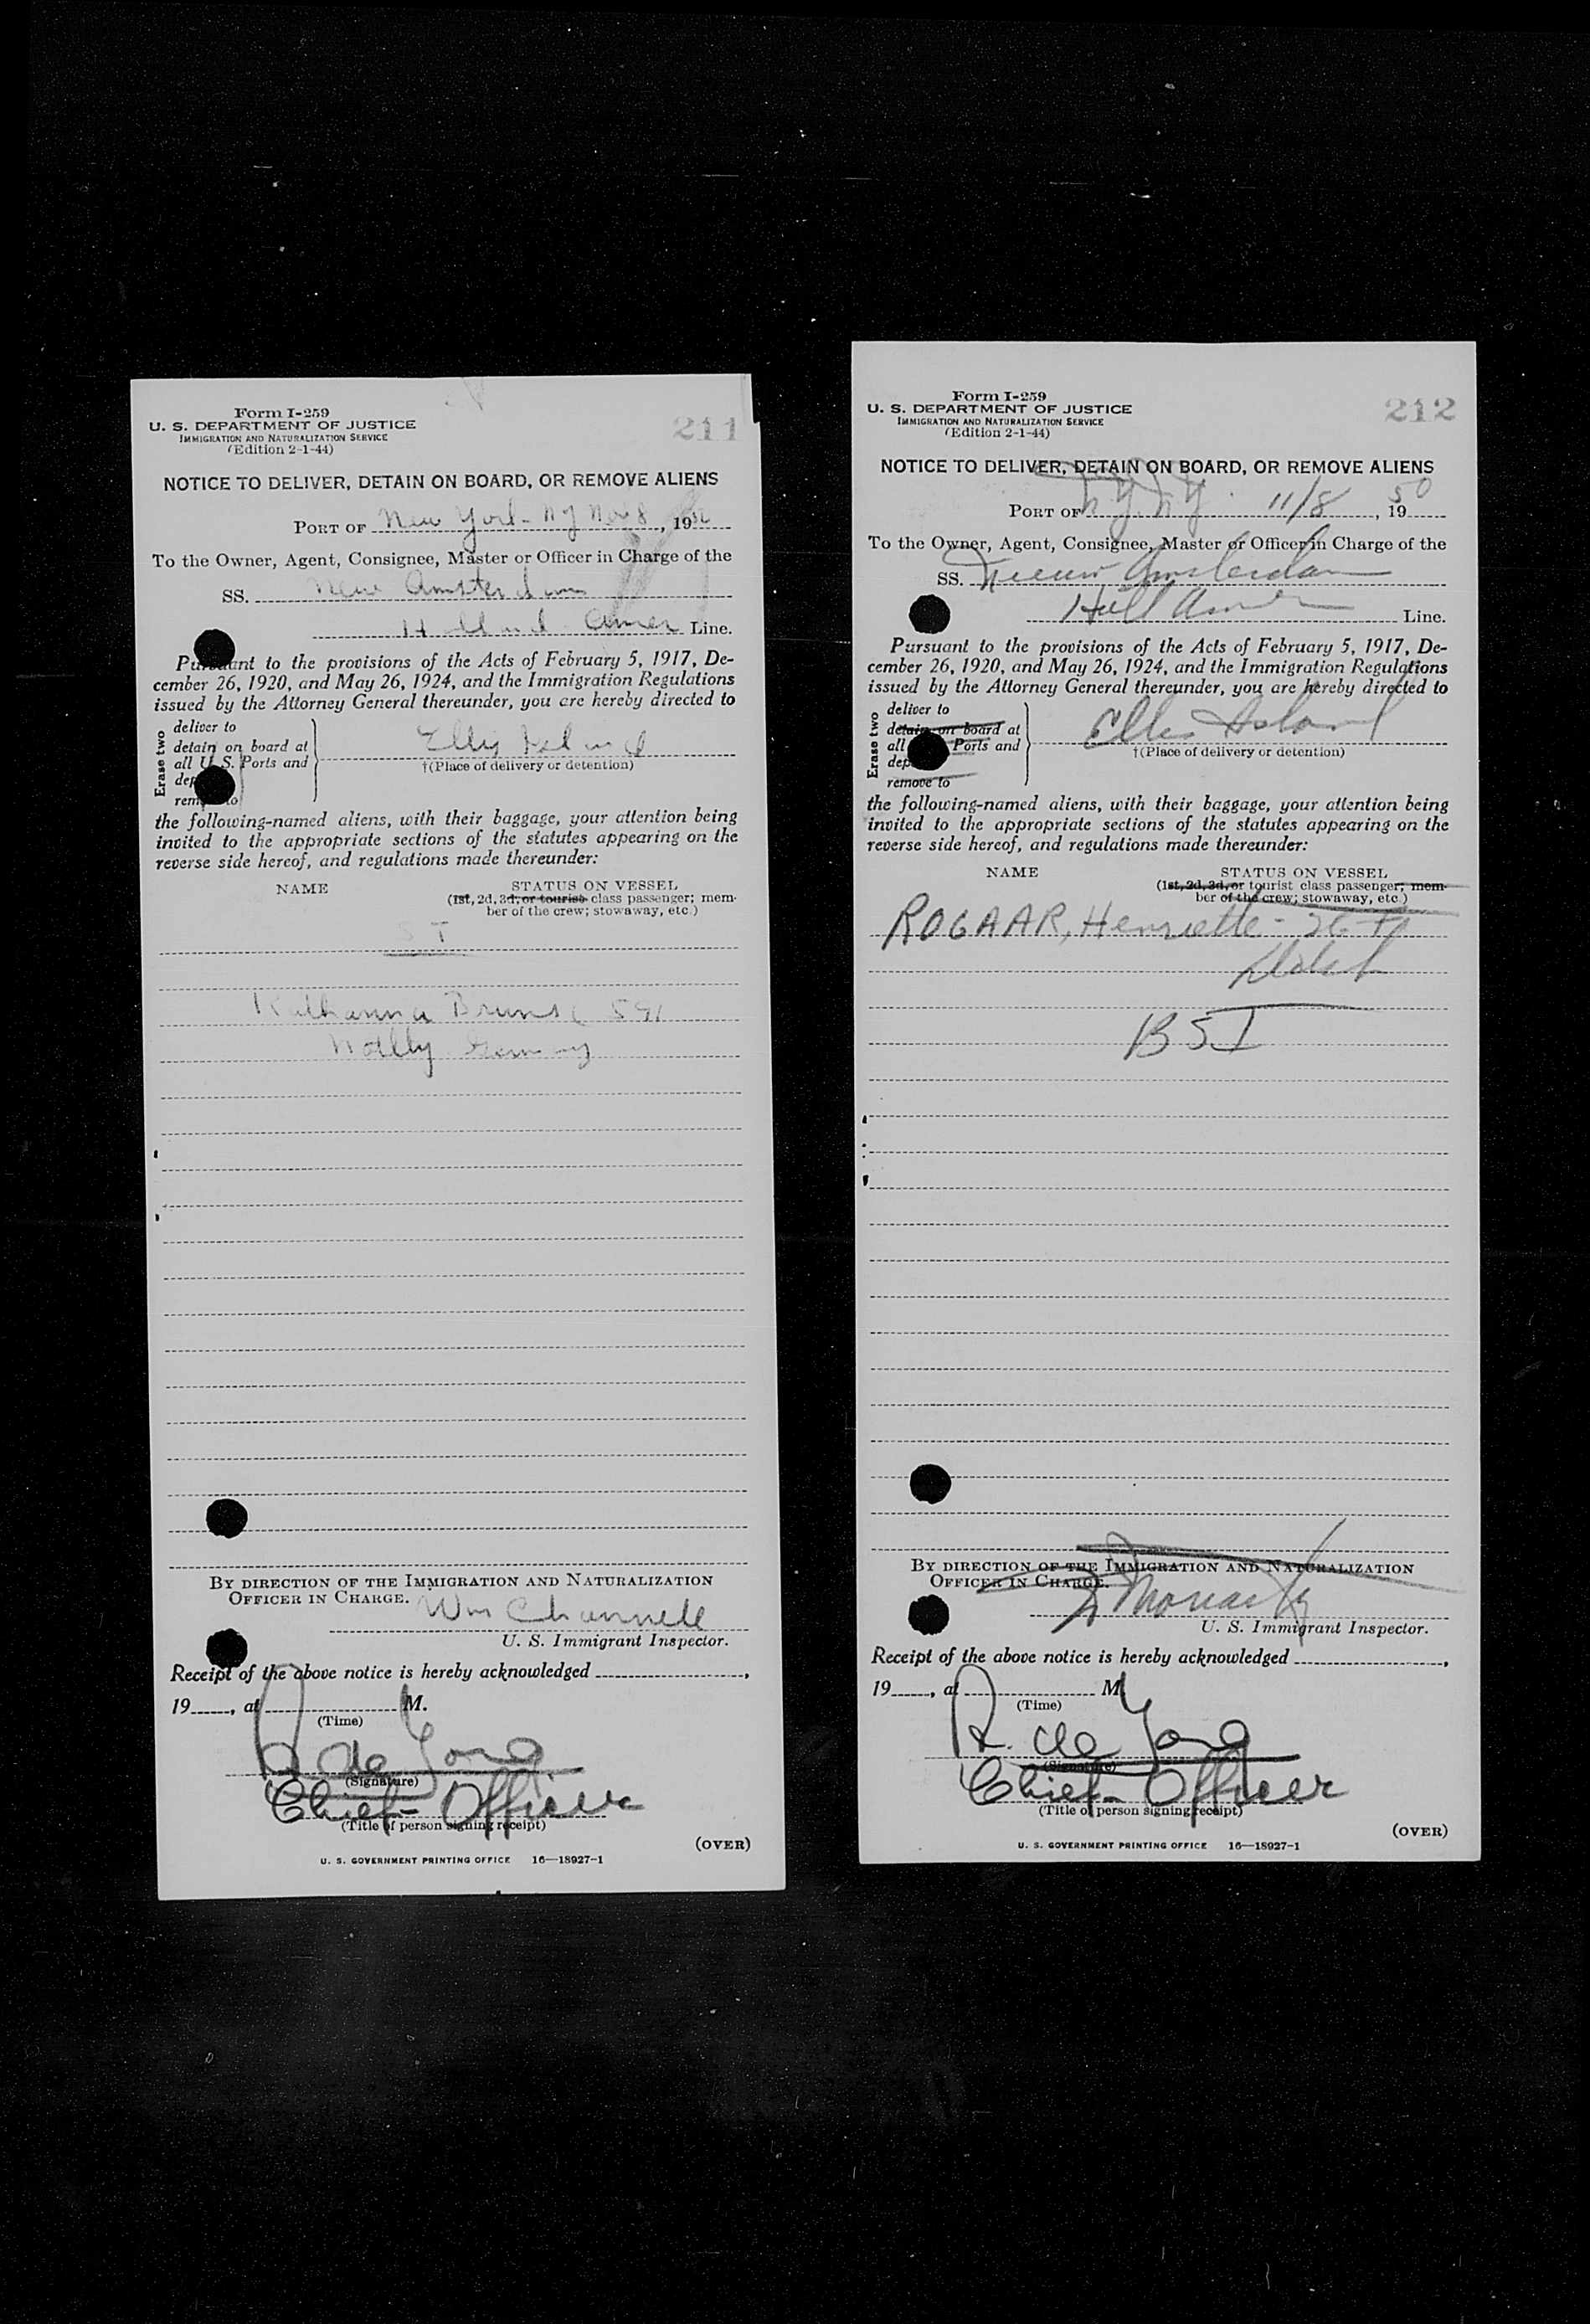 Form I-259
U. S. DEPARTMENT OF JUSTICE
IMMIGRATION AND NATURALIZATION SERVICE
(Edition 2-1-44)
211
NOTICE TO DELIVER, DETAIN ON BOARD, OR REMOVE ALIENS
PORT OF New York - NY Nov 8, 1950
To the Owner, Agent, Consignee, Master or Officer in Charge of the
SS. New Amsterdam
Holland Amer Line.
Pursuant to the provisions of the Acts of February 5, 1917, De-
cember 26, 1920, and May 26, 1924, and the Immigration Regulations
issued by the Attorney General thereunder, you are hereby directed to
Erase two
deliver to
detain on board at
all U. S. Ports and
dep
remove to
Ellis Island
†(Place of delivery or detention)
the following-named aliens, with their baggage, your attention being
invited to the appropriate sections of the statutes appearing on the
reverse side hereof, and regulations made thereunder:
NAME
STATUS ON VESSEL
(1st, 2d, 3d, or tourist class passenger; mem-
ber of the crew; stowaway, etc.)
Katharina
Germany
BY DIRECTION OF THE IMMIGRATION AND NATURALIZATION
OFFICER IN CHARGE.
Wm Channell
U. S. Immigrant Inspector.
Receipt of the above notice is hereby acknowledged
19, at M.
(Time)
R. de Jong
(Signature)
Chief Officer
(Title of person signing receipt)
(OVER)
U. S. GOVERNMENT PRINTING OFFICE 16—18927-1
Form I-259
U. S. DEPARTMENT OF JUSTICE
IMMIGRATION AND NATURALIZATION SERVICE
(Edition 2-1-44)
212
NOTICE TO DELIVER, DETAIN ON BOARD, OR REMOVE ALIENS
PORT OF N.Y. N.Y. 11/8, 1950
To the Owner, Agent, Consignee, Master or Officer in Charge of the
SS. Nieuw Amsterdam
Holl Amer Line.
Pursuant to the provisions of the Acts of February 5, 1917, De-
cember 26, 1920, and May 26, 1924, and the Immigration Regulations
issued by the Attorney General thereunder, you are hereby directed to
Erase two
deliver to
detain on board at
all Ports and
dep
remove to
Ellis Island
†(Place of delivery or detention)
the following-named aliens, with their baggage, your attention being
invited to the appropriate sections of the statutes appearing on the
reverse side hereof, and regulations made thereunder:
NAME
STATUS ON VESSEL
(1st, 2d, 3d, or tourist class passenger; mem-
ber of the crew; stowaway, etc.)
ROGAAR, Henriette - 26
BSI
BY DIRECTION OF THE IMMIGRATION AND NATURALIZATION
OFFICER IN CHARGE.
U. S. Immigrant Inspector.
Receipt of the above notice is hereby acknowledged
19, at M.
(Time)
R. de Jong
(Signature)
Chief Officer
(Title of person signing receipt)
(OVER)
U. S. GOVERNMENT PRINTING OFFICE 16—18927-1